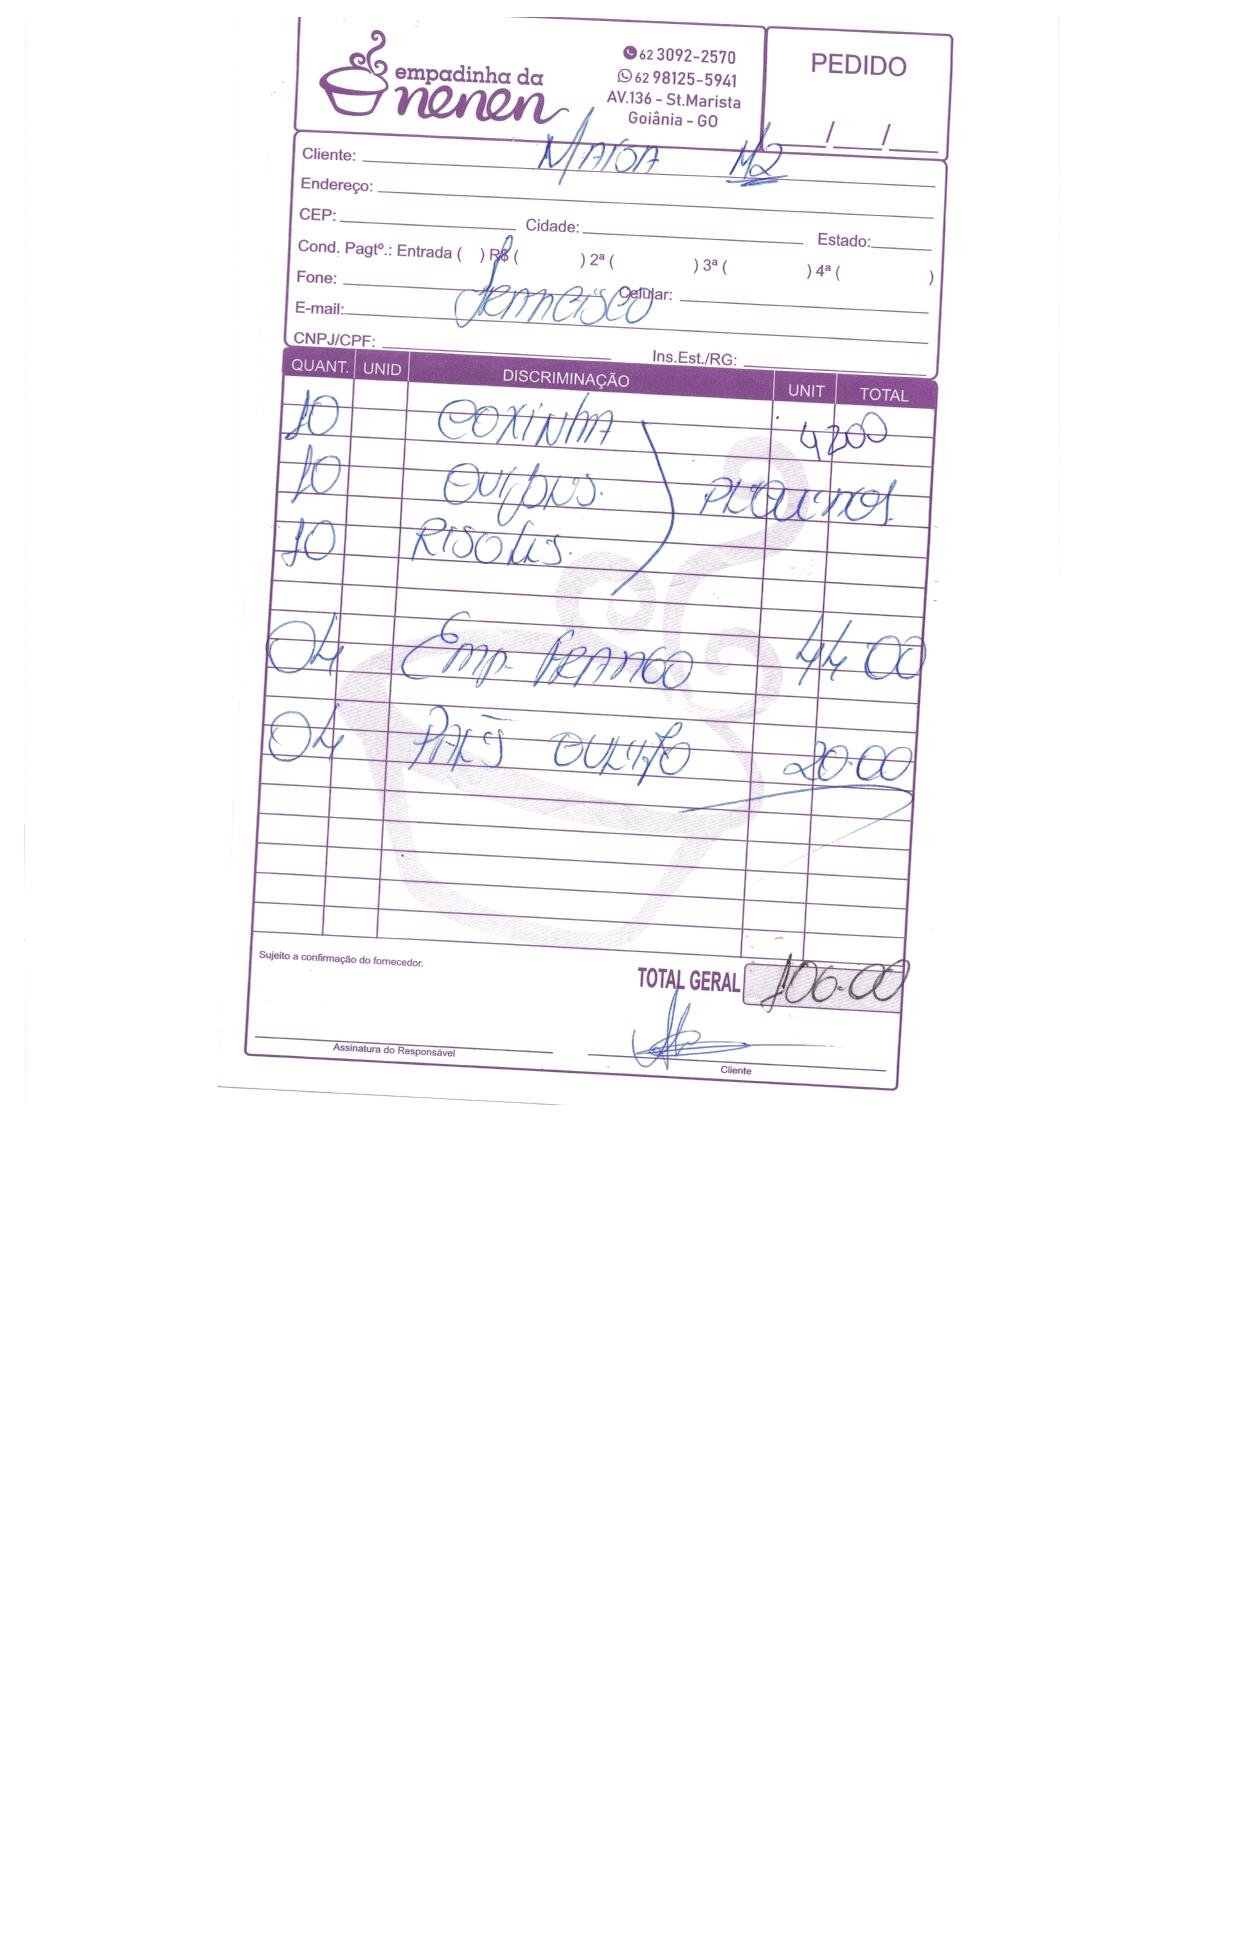 empadinha da
nenen
62 3092-2570
62 98125-5941
AV.136 - St.Marista
Goiânia - GO
PEDIDO
/ /
Cliente: M2
Endereço:
CEP: Cidade: Estado:
Cond. Pagtº.: Entrada ( ) R$ ( ) 2ª ( ) 3ª ( ) 4ª ( )
Fone: Celular:
E-mail: Francisco
CNPJ/CPF: Ins.Est./RG:
QUANT. UNID DISCRIMINAÇÃO UNIT TOTAL
10 COXINHA 4200
10 PEQUENOS
10 RISOLIS.
04 Emp. FRANGO 44 00
04 20.00
Sujeito a confirmação do fornecedor.
TOTAL GERAL 106.00
Assinatura do Responsável Cliente